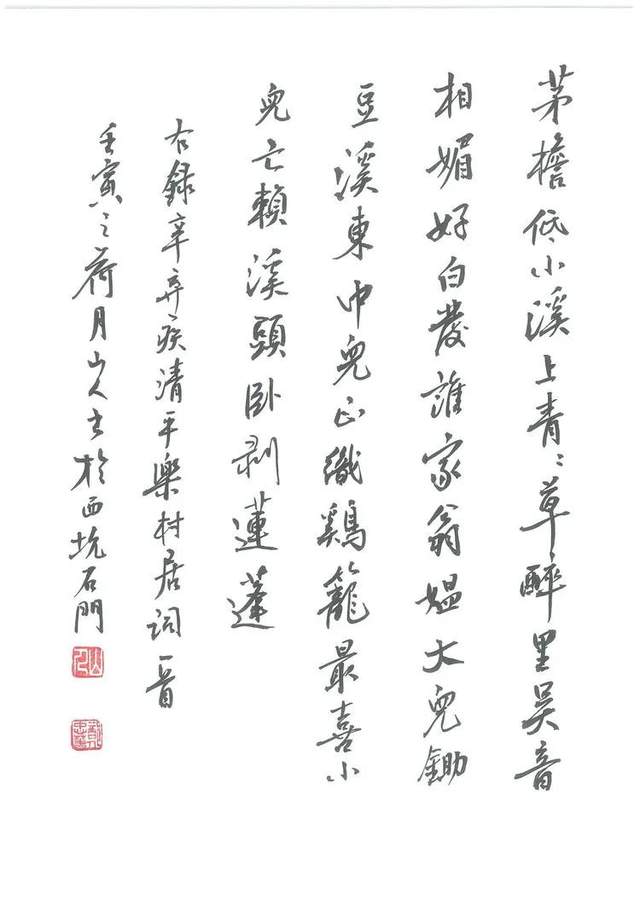 茅檐低小溪上青〻草醉里吴音
相媚好白發誰家翁媼大兒鋤
豆溪東中兒正織鷄籠最喜小
兒亡賴溪頭卧剥蓮蓬
右録辛弃疾清平樂村居詞一首
壬寅之荷月山人书於西坑石門
山人